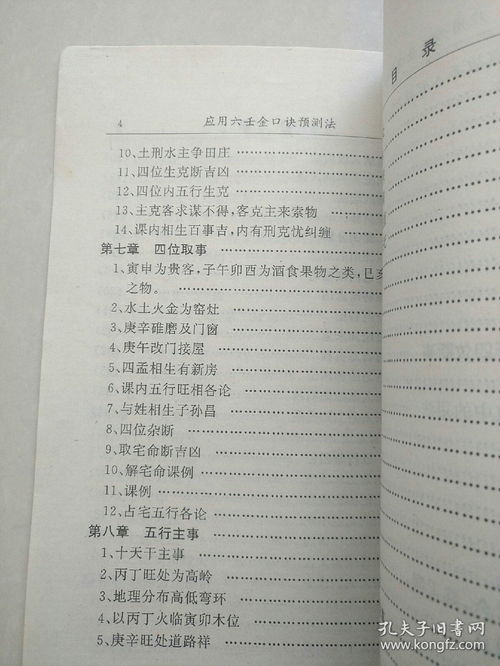 4　应用六壬金口诀预测法
10、土刑水主争田庄
11、四位生克断吉凶
12、四位内五行生克
13、主克客求谋不得,客克主来索物
14、课内相生百事吉,内有刑克忧纠缠
第七章　四位取事
1、寅申为贵客,子午卯酉为酒食果物之类,巳亥
之物。
2、水土火金为窑灶
3、庚辛碓磨及门窗
4、庚午改门接屋
5、四孟相生有新房
6、课内五行旺相各论
7、与姓相生子孙昌
8、四位杂断
9、取宅命断吉凶
10、解宅命课例
11、课例
12、占宅五行各论
第八章　五行主事
1、十天干主事
2、丙丁旺处为高岭
3、地理分布高低弯环
4、以丙丁火临寅卯木位
5、庚辛旺处道路祥
目　录
孔夫子旧书网
www.kongfz.com